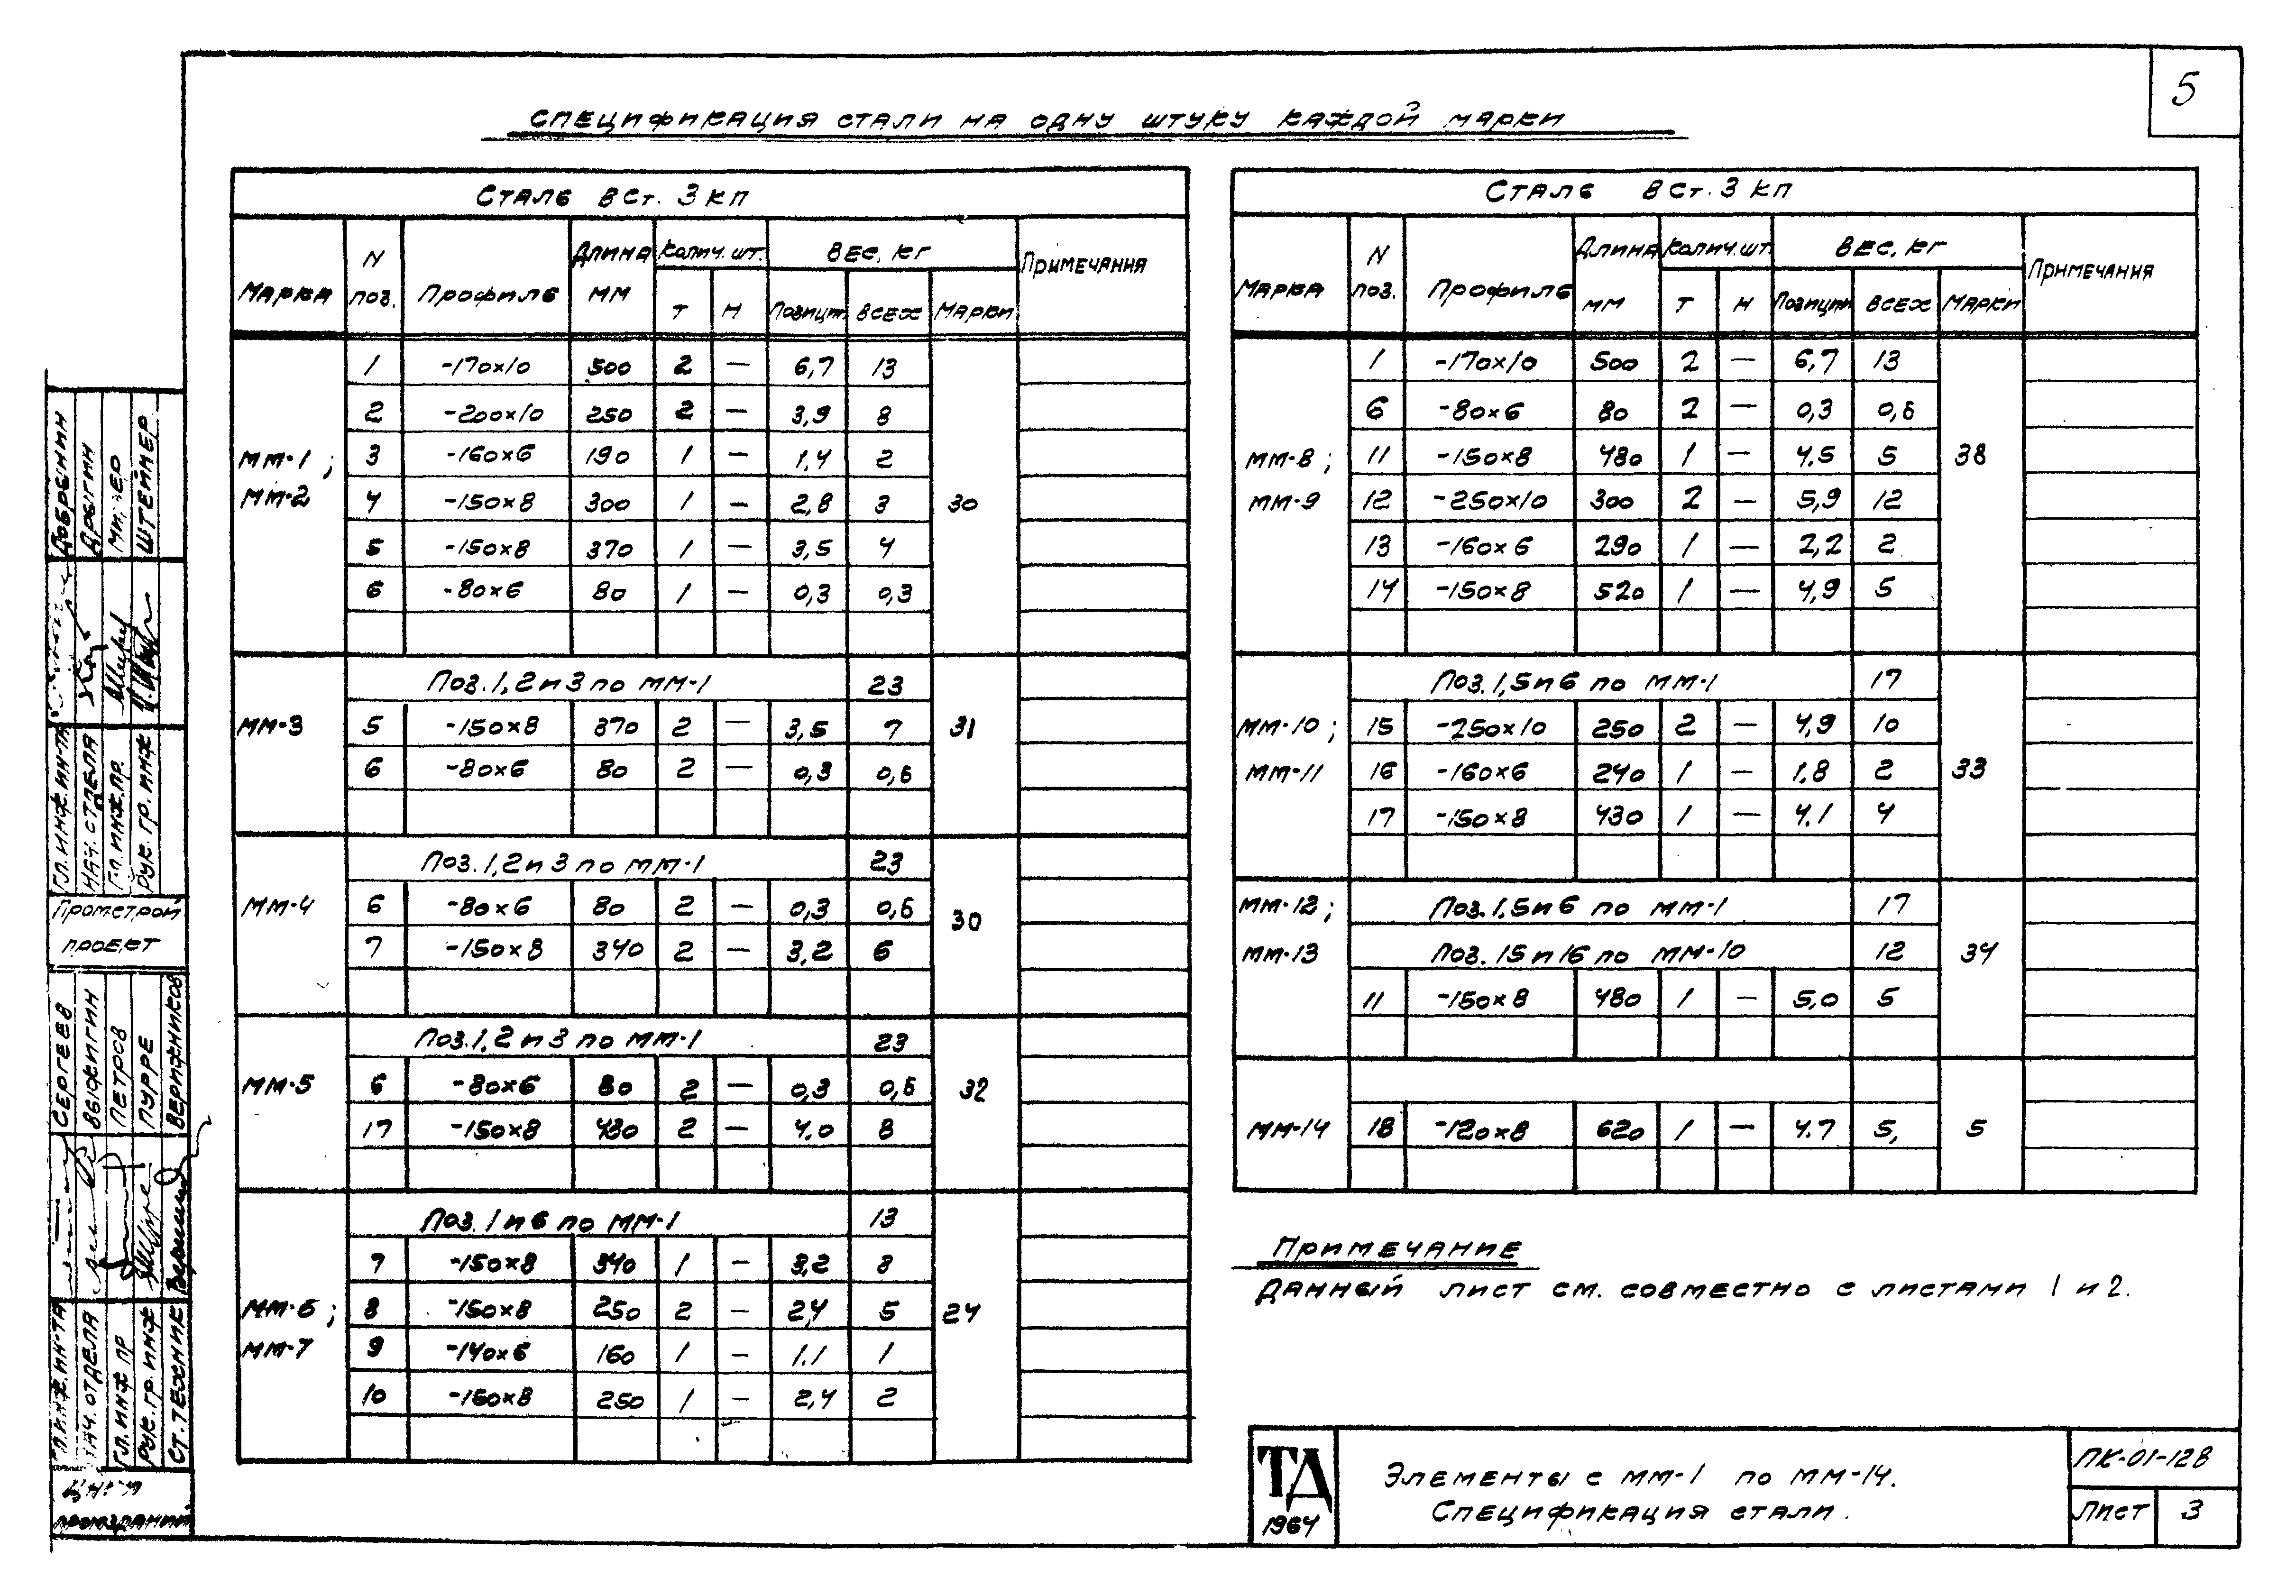 5
Спецификация стали на одну штуку каждой марки
Сталь В Ст. 3 кп
Марка N поз. Профиль Длина мм Колич. шт. Вес, кг Примечания
Т Н Позиции Всех Марки
ММ-1; ММ-2 30
1 -170×10 500 2 — 6,7 13
2 -200×10 250 2 — 3,9 8
3 -160×6 190 1 — 1,4 2
4 -150×8 300 1 — 2,8 3
5 -150×8 370 1 — 3,5 4
6 -80×6 80 1 — 0,3 0,3
Поз. 1, 2 и 3 по ММ-1 23
ММ-3 5 -150×8 370 2 — 3,5 7 31
6 -80×6 80 2 — 0,3 0,6
Поз. 1, 2 и 3 по ММ-1 23
ММ-4 6 -80×6 80 2 — 0,3 0,6 30
7 -150×8 340 2 — 3,2 6
Поз. 1, 2 и 3 по ММ-1 23
ММ-5 6 -80×6 80 2 — 0,3 0,6 32
17 -150×8 430 2 — 4.0 8
Поз. 1 и 6 по ММ-1 13
7 -150×8 340 1 — 3,2 3
ММ-6; 8 -150×8 250 2 — 2,4 5 24
ММ-7 9 -140×6 160 1 — 1.1 1
10 -160×8 250 1 — 2,4 2
Сталь В Ст. 3 кп
Марка N поз. Профиль Длина мм Колич. шт. Вес, кг Примечания
Т Н Позиции Всех Марки
1 -170×10 500 2 — 6,7 13
6 -80×6 80 2 — 0,3 0,6
ММ-8; 11 -150×8 480 1 — 4.5 5 38
ММ-9 12 -250×10 300 2 — 5,9 12
13 -160×6 290 1 — 2,2 2
14 -150×8 520 1 — 4,9 5
Поз. 1, 5 и 6 по ММ-1 17
ММ-10; 15 -250×10 250 2 — 4,9 10
ММ-11 16 -160×6 240 1 — 1.8 2 33
17 -150×8 430 1 — 4.1 4
ММ-12; Поз. 1, 5 и 6 по ММ-1 17
ММ-13 Поз. 15 и 16 по ММ-10 12 34
11 -150×8 480 1 — 5,0 5
ММ-14 18 -120×8 620 1 — 4.7 5, 5
Примечание
Данный лист см. совместно с листами 1 и 2.
ТД
1964
Элементы с ММ-1 по ММ-14.
Спецификация стали.
ПК-01-128
Лист 3
Гл. инж. ин-та Добрынин
Нач. отдела
Гл. инж. пр.
Рук. гр. инж Штеймер
Промстрой
проект
Гл. инж. ин-та Сергеев
Нач. отдела Выжигин
Гл. инж пр Петров
Рук. гр. инж Пурре
Ст. техник Верижников
промзданий